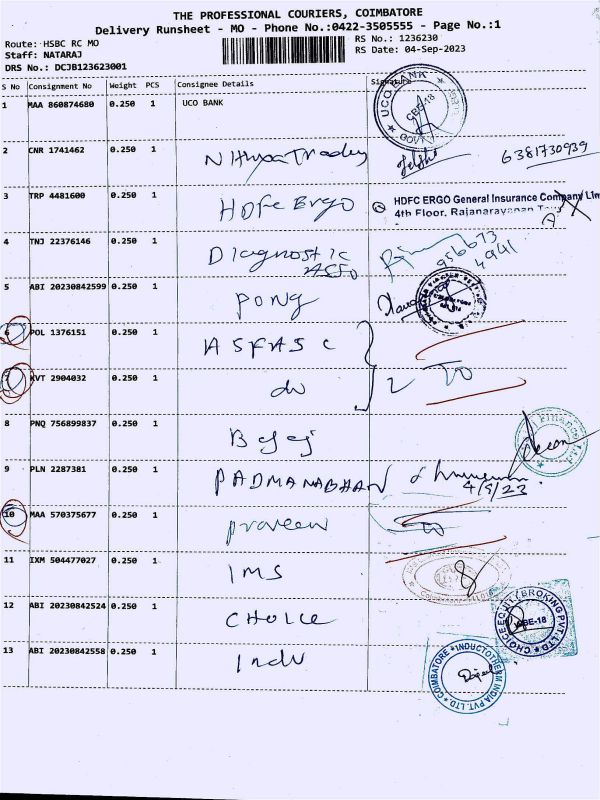 THE PROFESSIONAL COURIERS, COIMBATORE
Delivery Runsheet - MO - Phone No.:0422-3505555 - Page No.:1
Route: HSBC RC MO RS No.: 1236230
Staff: NATARAJ RS Date: 04-Sep-2023
DRS No.: DCJB123623001
S No Consignment No Weight PCS Consignee Details Signature
1 MAA 860874680 0.250 1 UCO BANK
UCO BANK CBE-18
2 CNR 1741462 0.250 1 Nithya Tradey 6381730939
3 TRP 4481600 0.250 1 HDFC Ergo HDFC ERGO General Insurance Company Lim
4th Floor, Rajanarayanan
4 TNJ 22376146 0.250 1 Diagnostic 956673
4941
5 ABI 20230842599 0.250 1 Pong
6 POL 1376151 0.250 1 ASFASC
7 KVT 2904032 0.250 1 do 2 TO
8 PNQ 756899837 0.250 1 Bajaj
9 PLN 2287381 0.250 1 PADMANABHAN
4/9/23
10 MAA 570375677 0.250 1 Praveen TO
11 IXM 504477027 0.250 1 IMS
12 ABI 20230842524 0.250 1 CHOICE
CHOICE EQUITY BROKING PVT. LTD. CBE-18
13 ABI 20230842558 0.250 1 Indu
INDUCTOTHERM INDIA PVT. LTD. COIMBATORE